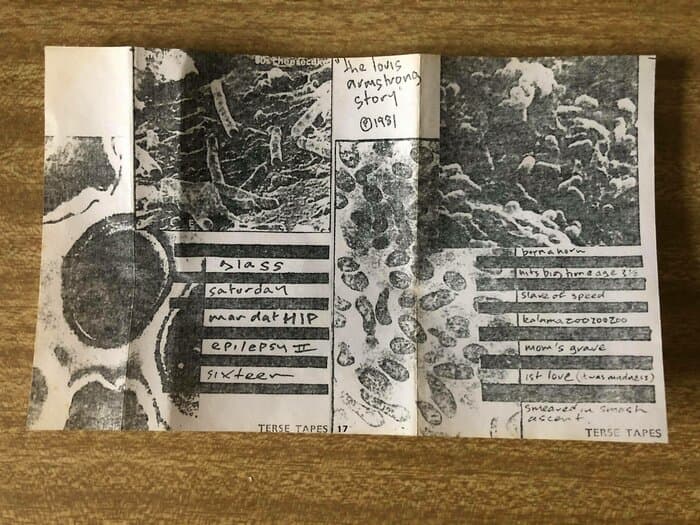 80s cheesecake
glass
saturday
mandatHIP
epilepsy II
sixteen
TERSE TAPES 17
the louis
armstrong
story
℗1981
born a horn
hits big time age 3½
slave of speed
kalamazoozoozoo
mom's grave
1st love (it was madness)
smeared in smash
ascent
TERSE TAPES